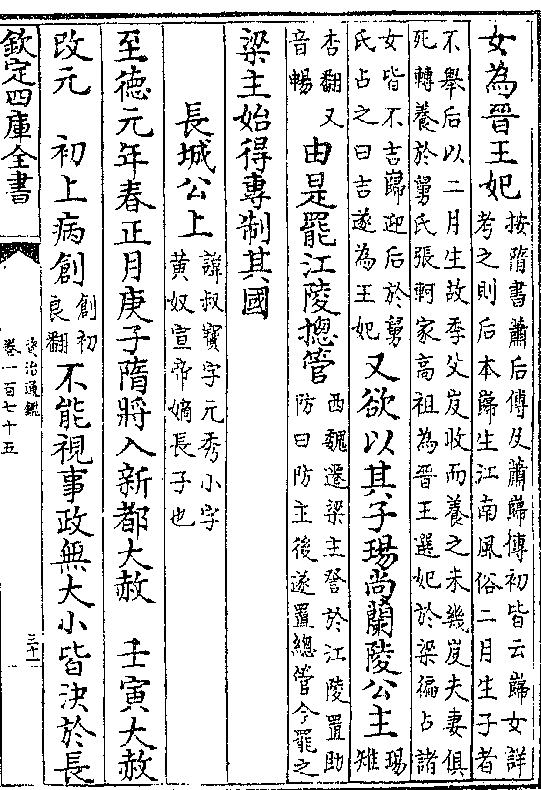 女為晉王妃按隋書蕭后傳及蕭巋傳初皆云巋女詳考之則后本巋生江南風俗二月生子者
不舉后以二月生故季父岌收而養之未幾岌夫妻俱死轉養於舅氏張軻家高祖為晉王選妃於梁徧占諸
女皆不吉巋迎后於舅氏占之曰吉遂為王妃又欲以其子瑒尚蘭陵公主瑒雉
杏翻又音暢由是罷江陵揔管西魏遷梁主詧於江陵置助防曰防主後遂置總管今罷之
梁主始得專制其國
長城公上諱叔寶字元秀小字黃奴宣帝嫡長子也
至德元年春正月庚子隋將入新都大赦 壬寅大赦
改元 初上病創創初良翻不能視事政無大小皆決於長
欽定四庫全書
資治通鑑
卷一百七十五
三十一